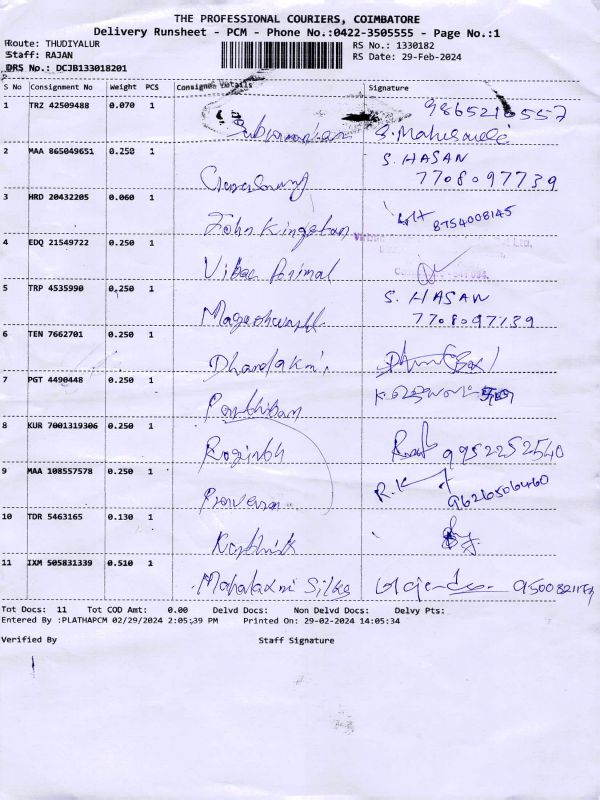 THE PROFESSIONAL COURIERS, COIMBATORE
Delivery Runsheet - PCM - Phone No.:0422-3505555 - Page No.:1
Route: THUDIYALUR RS No.: 1330182
Staff: RAJAN RS Date: 29-Feb-2024
DRS No.: DCJB133018201
S No Consignment No Weight PCS Consignee Details Signature
1 TRZ 42509488 0.070 1
2 MAA 865049651 0.250 1 S. HASAN
7708097739
3 HRD 20432205 0.060 1
John Kingstan 8754008145
4 EDQ 21549722 0.250 1
Virbac Animal
5 TRP 4535990 0.250 1 S. HASAN
7708097739
6 TEN 7662701 0.250 1
7 PGT 4490448 0.250 1
Parthiban
8 KUR 7001319306 0.250 1
9952252540
9 MAA 108557578 0.250 1 R.K
10 TDR 5463165 0.130 1
Karthik
11 IXM 505831339 0.510 1
Mahalaxmi Silks
Tot Docs: 11 Tot COD Amt: 0.00 Delvd Docs: Non Delvd Docs: Delvy Pts:
Entered By :PLATHAPCM 02/29/2024 2:05:39 PM Printed On: 29-02-2024 14:05:34
Verified By Staff Signature